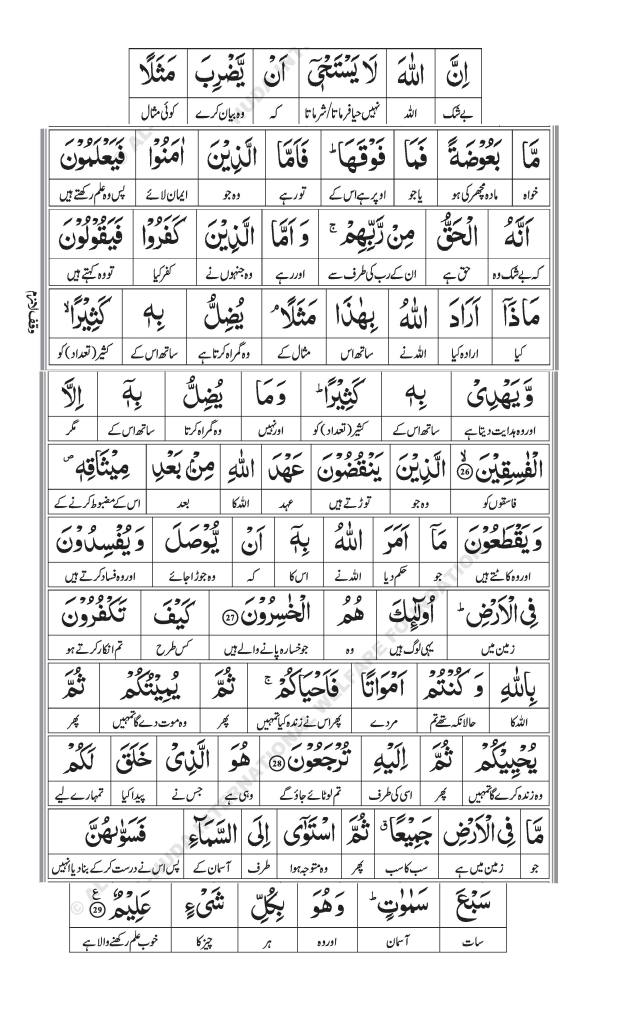 اِنَّ اللّٰهَ لَا يَسْتَحْيٖۤ اَنْ يَّضْرِبَ مَثَلًا
بے شک اللہ نہیں حیا فرماتا/شرماتا کہ وہ بیان کرے کوئی مثال
مَّا بَعُوْضَةً فَمَا فَوْقَهَا ؕ فَاَمَّا الَّذِيْنَ اٰمَنُوْا فَيَعْلَمُوْنَ
خواہ مادہ مچھر کی ہو یا جو اوپر ہے اس کے تو رہے وہ جو ایمان لائے پس وہ علم رکھتے ہیں
اَنَّهُ الْحَقُّ مِنْ رَّبِّهِمْ ۚ وَ اَمَّا الَّذِيْنَ كَفَرُوْا فَيَقُوْلُوْنَ
کہ بے شک وہ حق ہے ان کے رب کی طرف سے اور رہے وہ جنہوں نے کفر کیا تو وہ کہتے ہیں
مَاذَاۤ اَرَادَ اللّٰهُ بِهٰذَا مَثَلًا ۘ يُضِلُّ بِهٖ كَثِيْرًا ۙ
کیا ارادہ کیا اللہ نے ساتھ اس مثال کے وہ گمراہ کرتا ہے ساتھ اس کے کثیر (تعداد) کو
وَّ يَهْدِيْ بِهٖ كَثِيْرًا ؕ وَ مَا يُضِلُّ بِهٖۤ اِلَّا
اور وہ ہدایت دیتا ہے ساتھ اس کے کثیر (تعداد) کو اور نہیں وہ گمراہ کرتا ساتھ اس کے مگر
الْفٰسِقِيْنَ ۙ 26 الَّذِيْنَ يَنْقُضُوْنَ عَهْدَ اللّٰهِ مِنْۢ بَعْدِ مِيْثَاقِهٖ ۪
فاسقوں کو وہ جو توڑتے ہیں عہد اللہ کا بعد اس کے مضبوط کرنے کے
وَ يَقْطَعُوْنَ مَاۤ اَمَرَ اللّٰهُ بِهٖۤ اَنْ يُّوْصَلَ وَ يُفْسِدُوْنَ
اور وہ کاٹتے ہیں جو حکم دیا اللہ نے اس کا کہ وہ جوڑا جائے اور وہ فساد کرتے ہیں
فِي الْاَرْضِ ؕ اُولٰٓئِكَ هُمُ الْخٰسِرُوْنَ 27 كَيْفَ تَكْفُرُوْنَ
زمین میں یہی لوگ ہیں وہ جو خسارہ پانے والے ہیں کس طرح تم انکار کرتے ہو
بِاللّٰهِ وَ كُنْتُمْ اَمْوَاتًا فَاَحْيَاكُمْ ۚ ثُمَّ يُمِيْتُكُمْ ثُمَّ
اللہ کا حالانکہ تھے تم مردے پھر اس نے زندہ کیا تمہیں پھر وہ موت دے گا تمہیں پھر
يُحْيِيْكُمْ ثُمَّ اِلَيْهِ تُرْجَعُوْنَ 28 هُوَ الَّذِيْ خَلَقَ لَكُمْ
وہ زندہ کرے گا تمہیں پھر اسی کی طرف تم لوٹائے جاؤ گے وہی ہے جس نے پیدا کیا تمہارے لیے
مَّا فِي الْاَرْضِ جَمِيْعًا ۗ ثُمَّ اسْتَوٰۤى اِلَى السَّمَآءِ فَسَوّٰىهُنَّ
جو زمین میں ہے سب کا سب پھر وہ متوجہ ہوا طرف آسمان کے پس اس نے درست کر کے بنا دیا انہیں
سَبْعَ سَمٰوٰتٍ ؕ وَ هُوَ بِكُلِّ شَيْءٍ عَلِيْمٌ 29
سات آسمان اور وہ ہر چیز کا خوب علم رکھنے والا ہے
وقف لازم